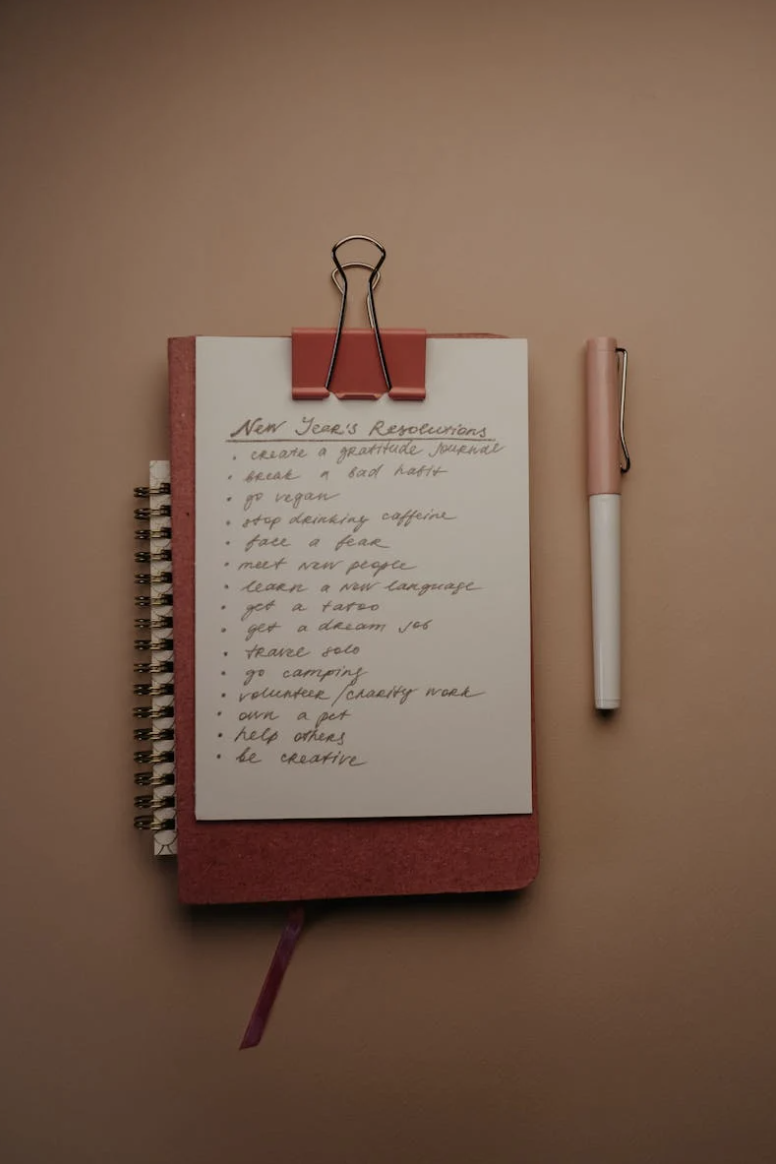 New Year's Resolutions
• create a gratitude journal
• break a bad habit
• go vegan
• stop drinking caffeine
• face a fear
• meet new people
• learn a new language
• get a tatoo
• get a dream job
• travel solo
• go camping
• volunteer/charity work
• own a pet
• help others
• be creative